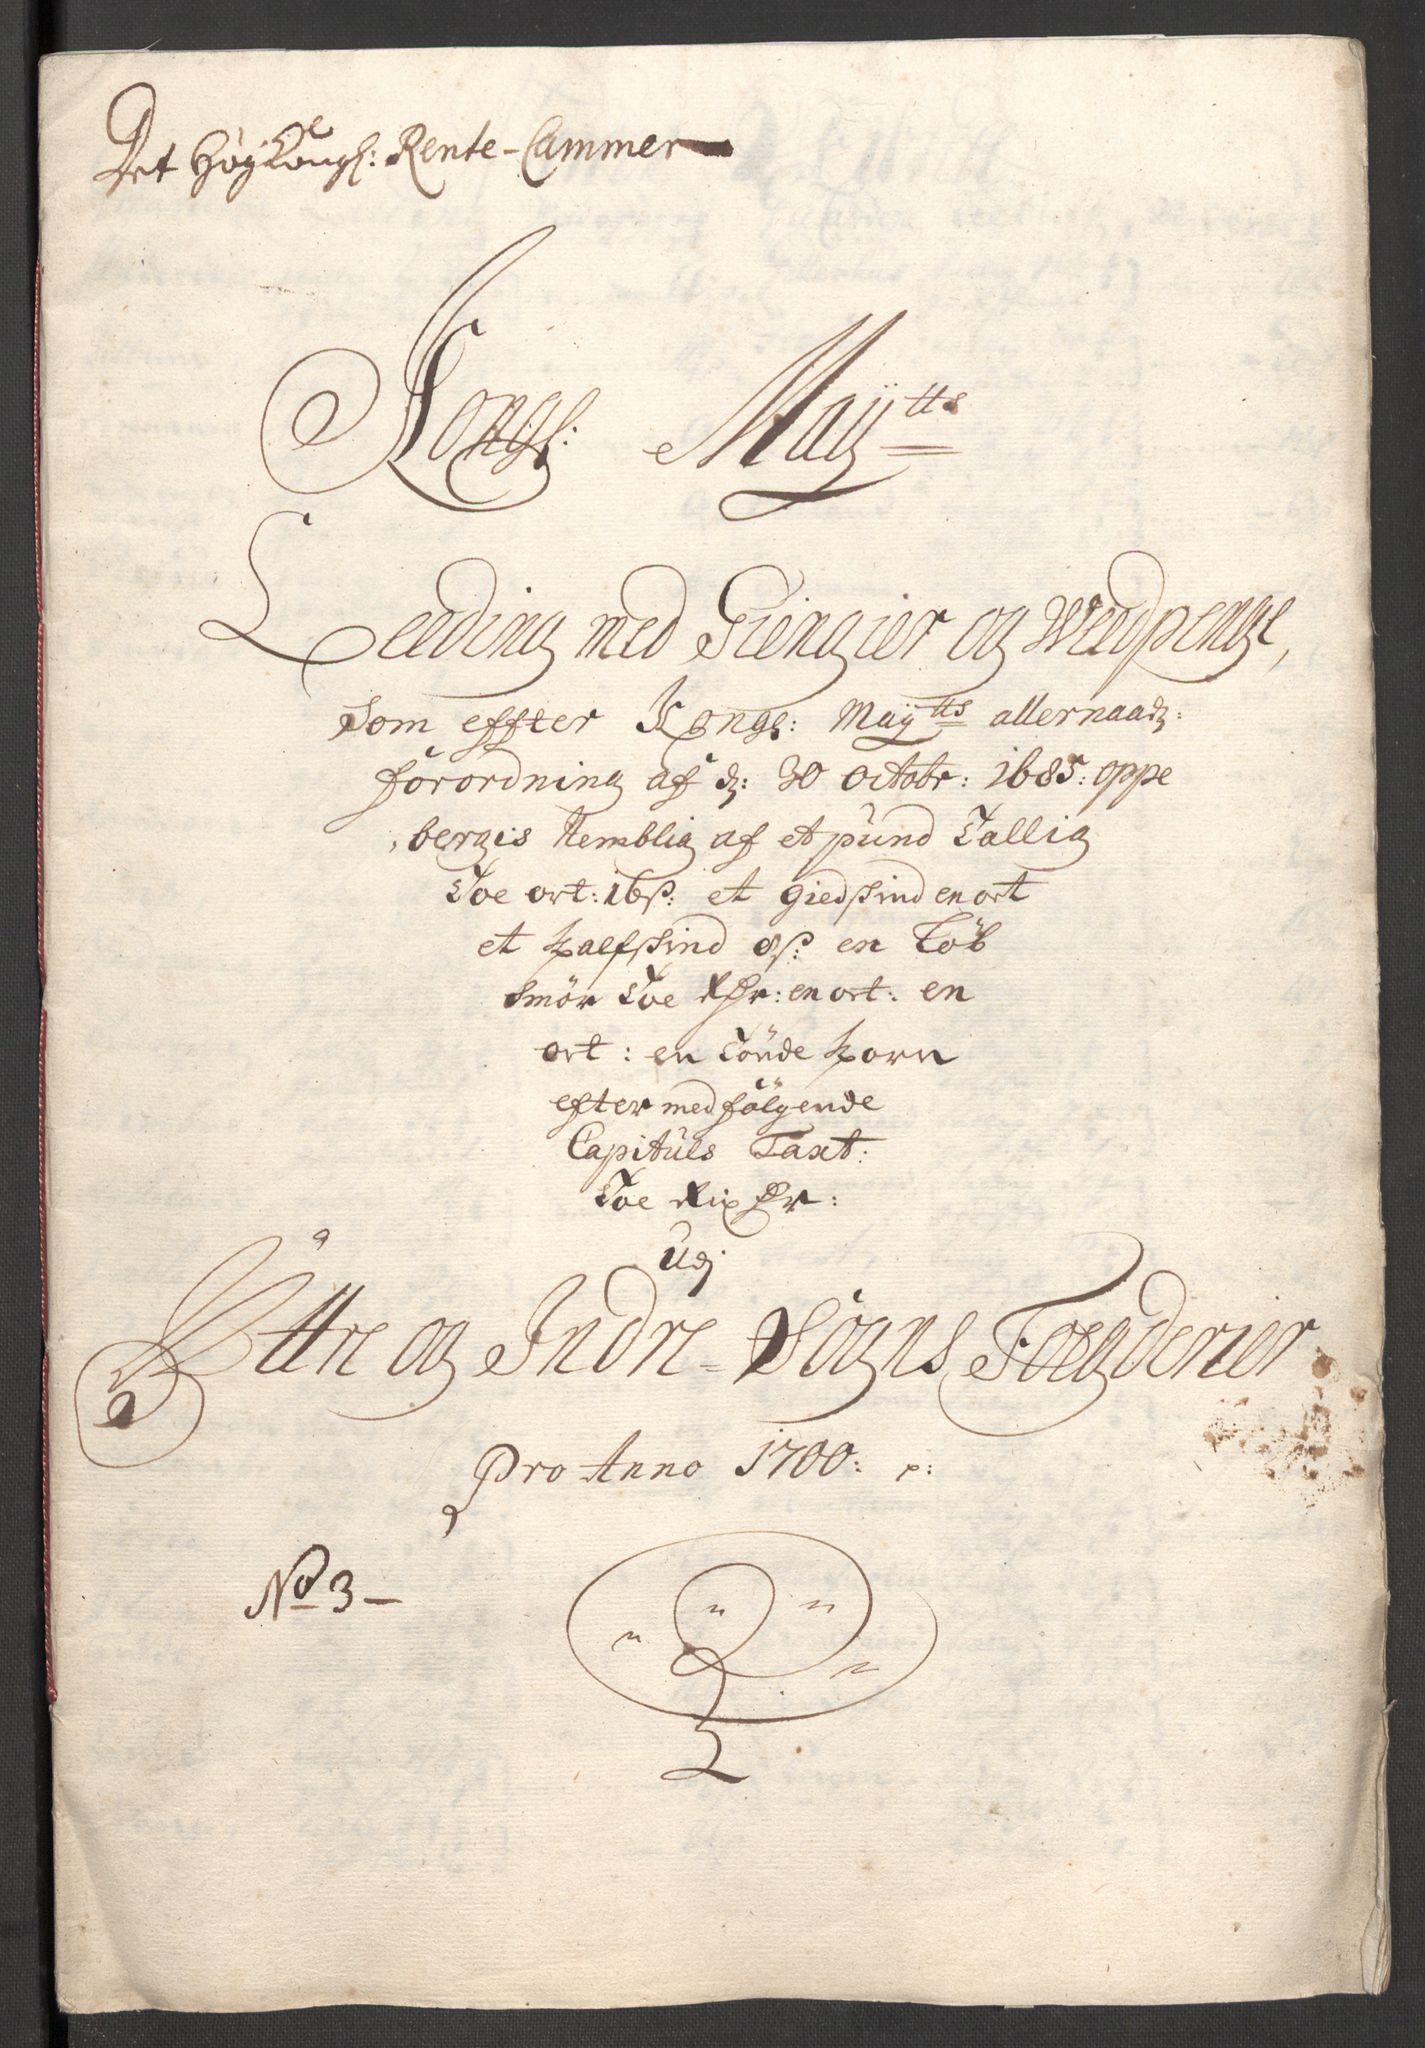 Det Høy Kongl: Rente-Cammer
Kongl: Maÿtts
Leeding med Giengier og Weedpenge,
som effter Kongl: Maÿtts allernaadg:
förordning af d: 30 Octobr: 1685: oppe
bergis Nemblig af et pund Tallig
Toe ort: 16 ß: et giedskind en ort
et kalfskind 8 ß: en Löb
Smör Toe Rdr: en ort: en
ort: en Tönde korn
efter medfölgende
Capituls Taxt:
Toe Rix dr:
Udj
Ÿttre og Indre-Sogns Foegderier
Pro Anno 1700:
No 3